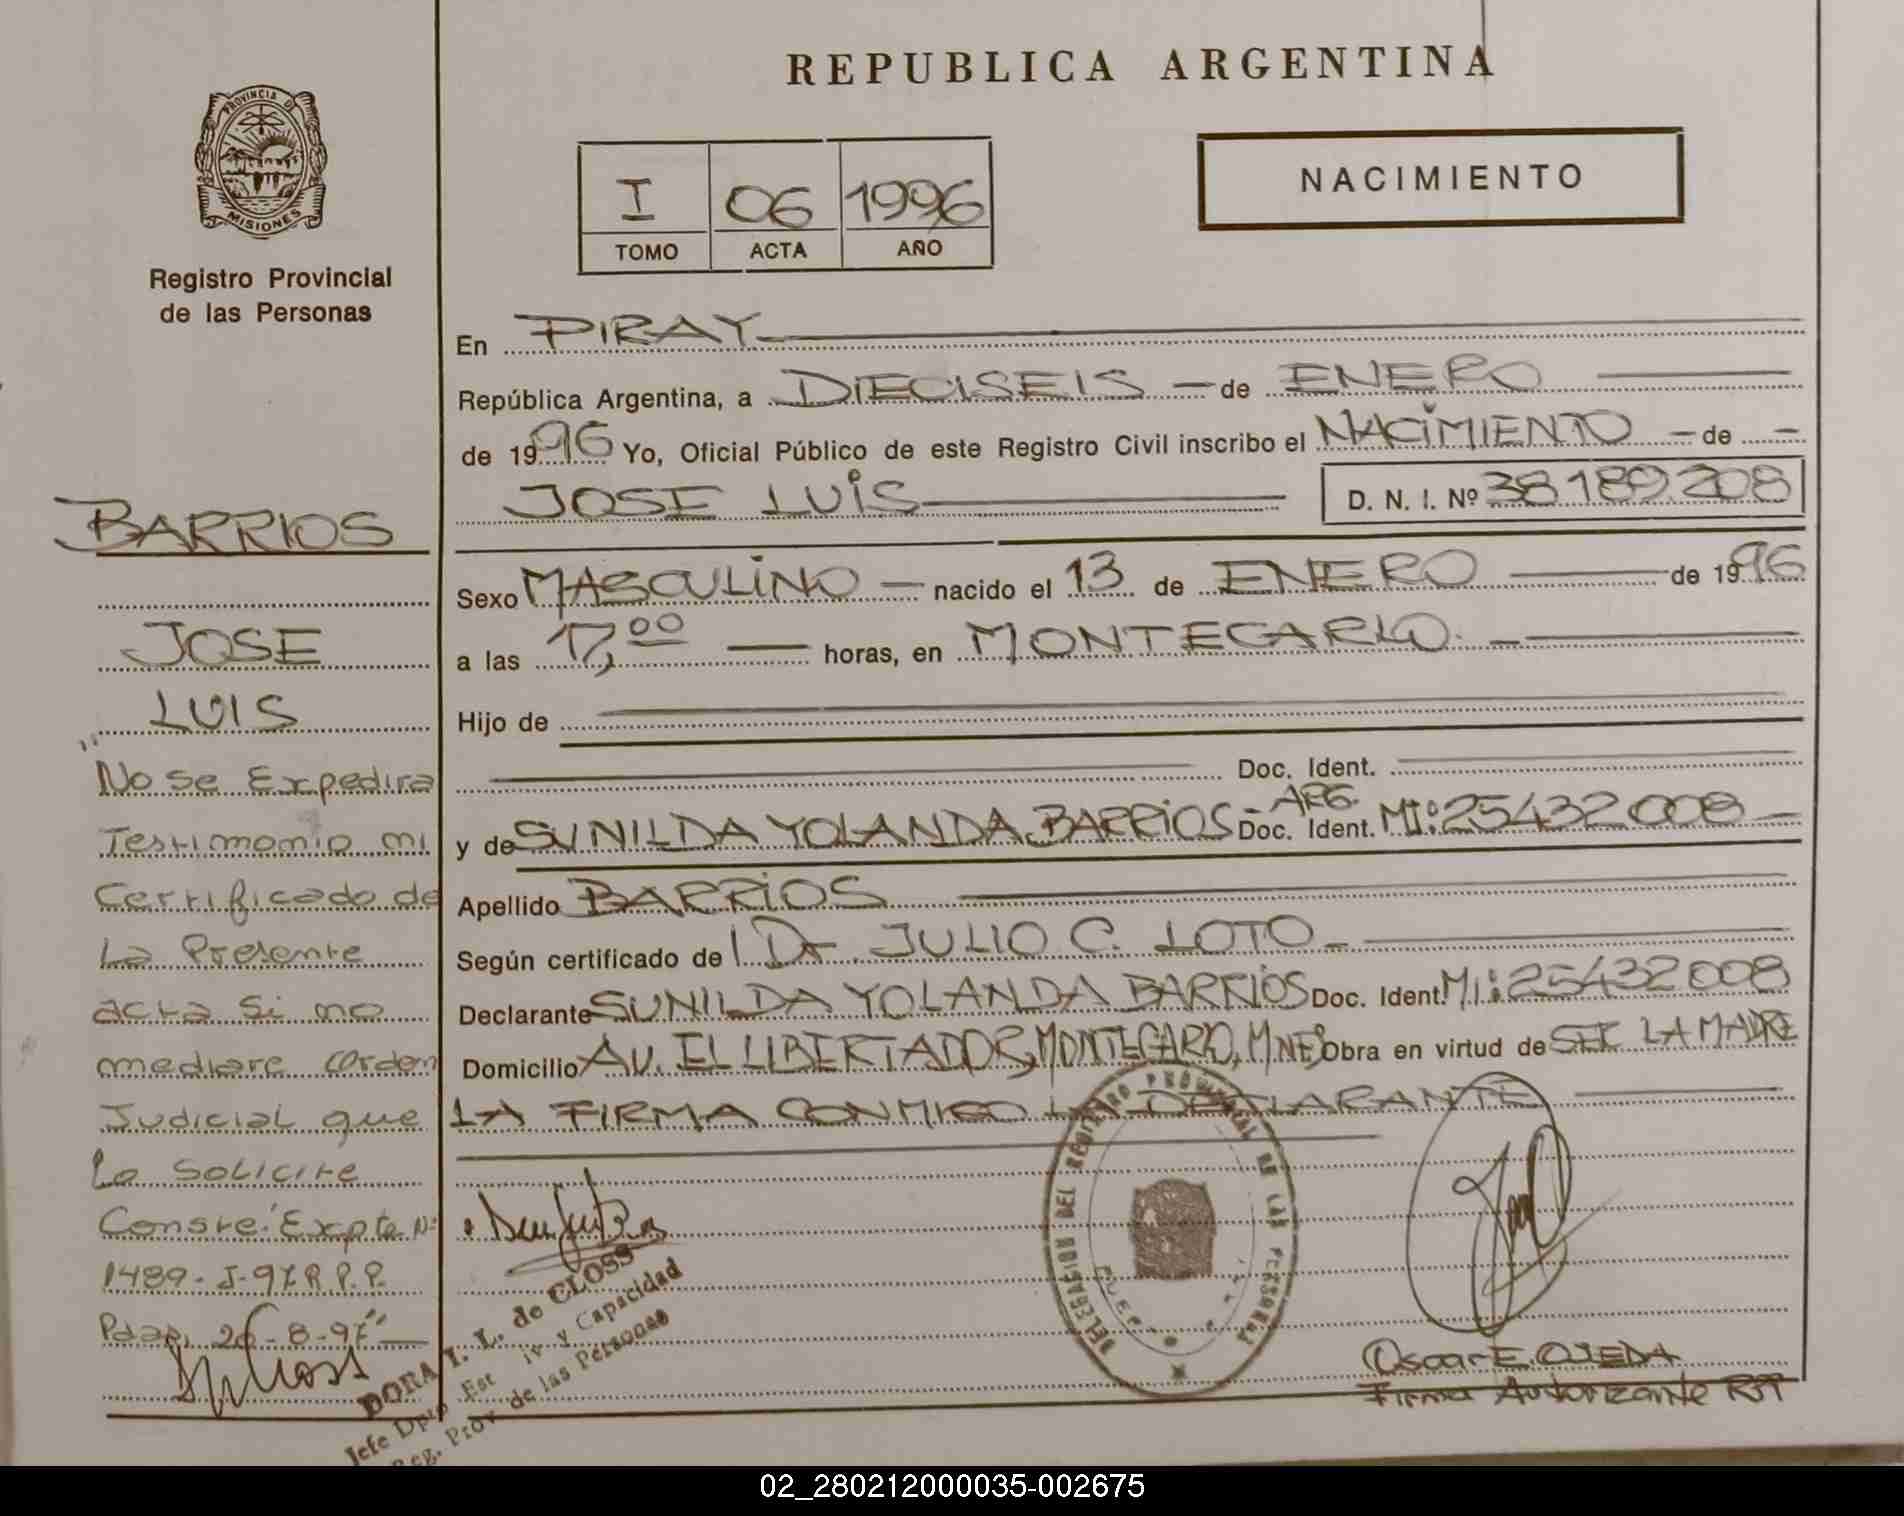 REPUBLICA ARGENTINA
PROVINCIA DE
MISIONES
Registro Provincial
de las Personas
I 06 1996
TOMO ACTA AÑO
NACIMIENTO
En PIRAY
República Argentina, a DIECISEIS de ENERO
de 1996 Yo, Oficial Público de este Registro Civil inscribo el NACIMIENTO de
JOSE LUIS D. N. I. Nº 38189.208
Sexo MASCULINO nacido el 13 de ENERO de 1996
a las 17,00 horas, en MONTECARLO.
Hijo de
Doc. Ident.
y de SUNILDA YOLANDA BARRIOS Doc. Ident. ARG. MI: 25432008
Apellido BARRIOS
Según certificado de Dr JULIO C. LOTO
Declarante SUNILDA YOLANDA BARRIOS Doc. Ident. MI: 25432008
Domicilio AV. EL LIBERTADOR, MONTECARLO, MNES Obra en virtud de SER LA MADRE
LA FIRMA CONMIGO LA DECLARANTE
BARRIOS
JOSE
LUIS
"No se Expedira
Testimonio ni
Certificado de
La Presente
acta Si no
mediare Orden
Judicial que
Lo Solicite
Conste: Expte Nº
1489-J-97 R.P.P.
Pdas, 26-8-97"
DORA I. L. de CLOSS
Jefe Dpto. Est iv y Capacidad
Reg. Prov. de las Personas
DELEGACION DEL REGISTRO PROVINCIAL DE LAS PERSONAS
Oscar E. OJEDA
Firma Autorizante RPP
02_280212000035-002675